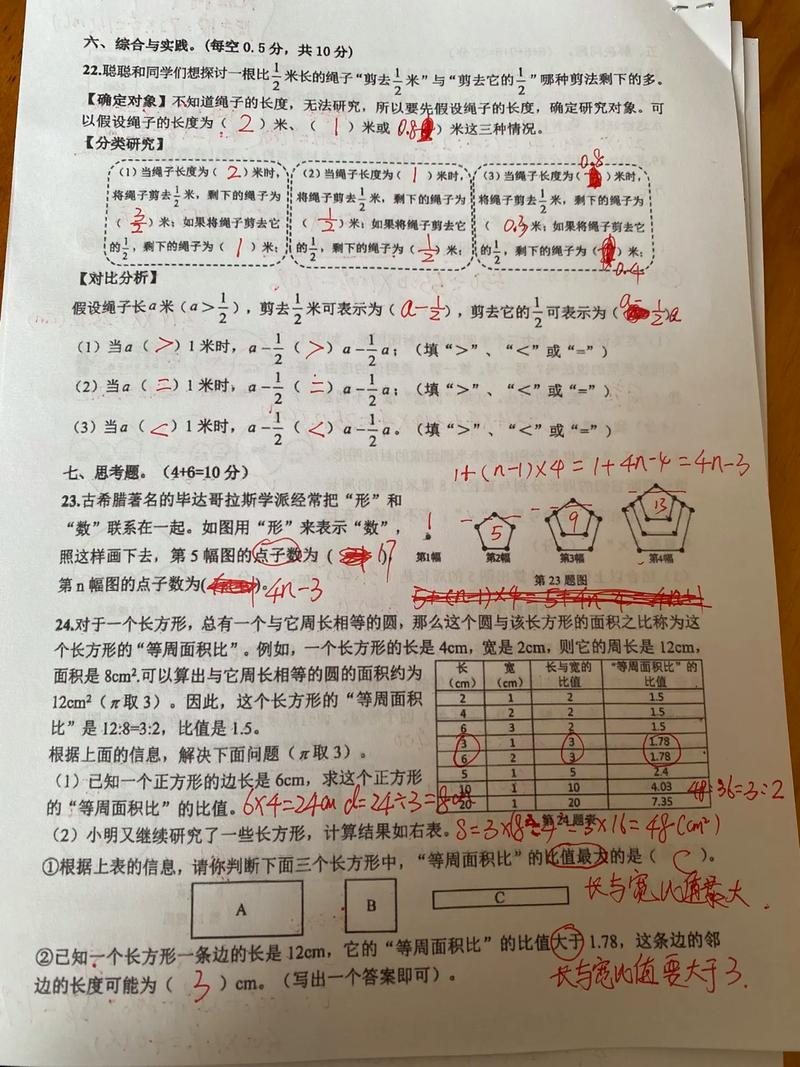 六、综合与实践。(每空 0.5 分，共 10 分)
22.聪聪和同学们想探讨一根比1/2米长的绳子“剪去1/2米”与“剪去它的1/2”哪种剪法剩下的多。
【确定对象】不知道绳子的长度，无法研究，所以要先假设绳子的长度，确定研究对象。可
以假设绳子的长度为（ 2 ）米、（ 1 ）米或 0.8 ）米这三种情况。
【分类研究】
（1）当绳子长度为（ 2 ）米时，
将绳子剪去1/2米，剩下的绳子为
（ 3/2 ）米；如果将绳子剪去它
的1/2，剩下的绳子为（ 1 ）米；
（2）当绳子长度为（ 1 ）米时，
将绳子剪去1/2米，剩下的绳子为
（ 1/2 ）米；如果将绳子剪去它
的1/2，剩下的绳子为（ 1/2 ）米；
0.8
（3）当绳子长度为（ ）米时，
将绳子剪去1/2米，剩下的绳子为
（ 0.3 米；如果将绳子剪去它
的1/2，剩下的绳子为（ ）米；
0.4
【对比分析】
假设绳子长a米（a＞1/2），剪去1/2米可表示为（ a-1/2 ），剪去它的1/2可表示为（ 1/2a
（1）当a（ > ）1 米时，a-1/2（ > ）a-1/2a；（填“＞”、“＜”或“=”）
（2）当a（ = ）1 米时，a-1/2（ = ）a-1/2a；（填“＞”、“＜”或“=”）
（3）当a（ < ）1 米时，a-1/2（ < ）a-1/2a。（填“＞”、“＜”或“=”）
七、思考题。（4+6=10 分）
1+(n-1)×4=1+4n-4=4n-3
23.古希腊著名的毕达哥拉斯学派经常把“形”和
“数”联系在一起。如图用“形”来表示“数”，
照这样画下去，第 5 幅图的点子数为（ 17
第 n 幅图的点子数为( )。4n-3
1 5 9 13
第1幅 第2幅 第3幅 第4幅
第 23 题图
24.对于一个长方形，总有一个与它周长相等的圆，那么这个圆与该长方形的面积之比称为这
个长方形的“等周面积比”。例如，一个长方形的长是 4cm，宽是 2cm，则它的周长是 12cm，
面积是 8cm².可以算出与它周长相等的圆的面积约为
12cm²（π取 3）。因此，这个长方形的“等周面积
比”是 12:8=3:2，比值是 1.5。
根据上面的信息，解决下面问题（π取 3）。
（1）已知一个正方形的边长是 6cm，求这个正方形
的“等周面积比”的比值。6×4=24cm d=24÷3=8cm
长（cm） 宽（cm） 长与宽的比值 “等周面积比”的比值
2 1 2 1.5
4 2 2 1.5
6 3 2 1.5
3 1 3 1.78
6 2 3 1.78
5 1 5 2.4
10 1 10 4.03
20 1 20 7.35
48:36=3:2
第 24 题表
（2）小明又继续研究了一些长方形，计算结果如右表。
3×16=48(cm²)
①根据上表的信息，请你判断下面三个长方形中，“等周面积比”的比值最大的是（ C ）。
A
B
C
长与宽比值最大.
②已知一个长方形一条边的长是 12cm，它的“等周面积比”的比值大于 1.78，这条边的邻
边的长度可能为（ 3 ）cm。（写出一个答案即可）。
长与宽比值要大于3.